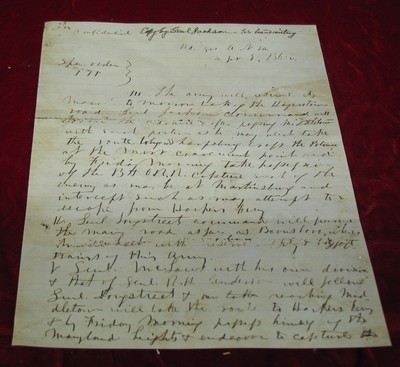 Confidential Copy by Genl Jackson
Hd Qrs A N Va
Sept 9, 1862
Spe order
191
III The army will resume its
march to morrow taking the Hagerstown
road. Genl Jackson command will
after passing Middletown
with such portion as he may select take
the route Sharpsburg cross the Potomac
at the most convenient point and
by Friday Morning take possession
of the B & O RR capture such of the
enemy as may be at Martinsburg and
intercept such as may attempt to
escape from Harpers ferry
Genl Longstreet command will pursue
the main road as far as Boonsboro where
it will halt with
trains of this Army
V Genl McLaws with his own division
& that of Genl R H Anderson will follow
Genl Longstreet & on reaching Mid
dletown will take the route to Harpers ferry
& by Friday Morning possess himself of the
Maryland heights & endeavor to capture the